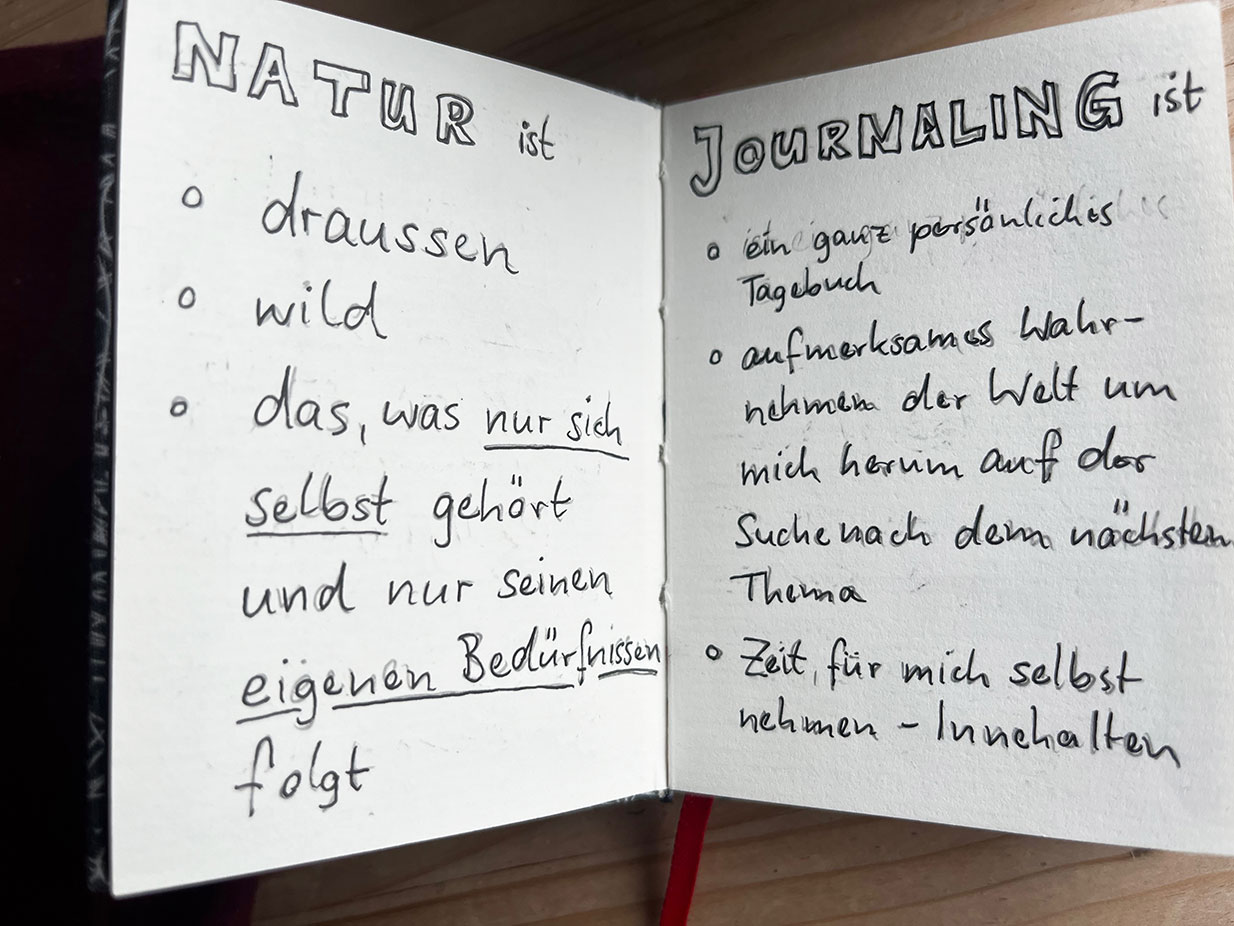 NATUR ist
o draussen
o wild
o das, was nur sich
selbst gehört
und nur seinen
eigenen Bedürfnissen
folgt
JOURNALING ist
o ein ganz persönliches
Tagebuch
o aufmerksames Wahr-
nehmen der Welt um
mich herum auf der
Suche nach dem nächsten
Thema
o Zeit, für mich selbst
nehmen - Innehalten